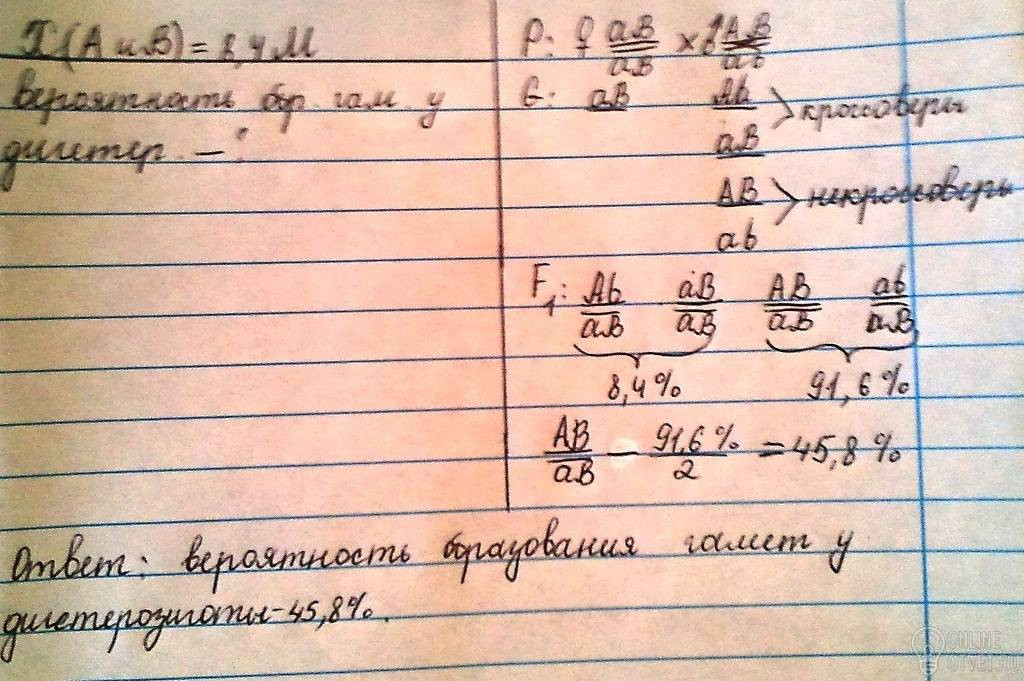 I(A и B) = 8,4 M
вероятность обр. гам. у
дигетер. — ?
P: ♀ aB/aB × ♂ AB/ab
G: aB Ab
aB
> кроссоверы
AB
ab
> некроссоверы
F₁: Ab/aB aB/aB AB/aB ab/aB
8,4 % 91,6 %
AB/aB — 91,6 %/2 = 45,8 %
Ответ: вероятность образования гамет у
дигетерозиготы - 45,8 %.
ONLINE
OTVET.RU